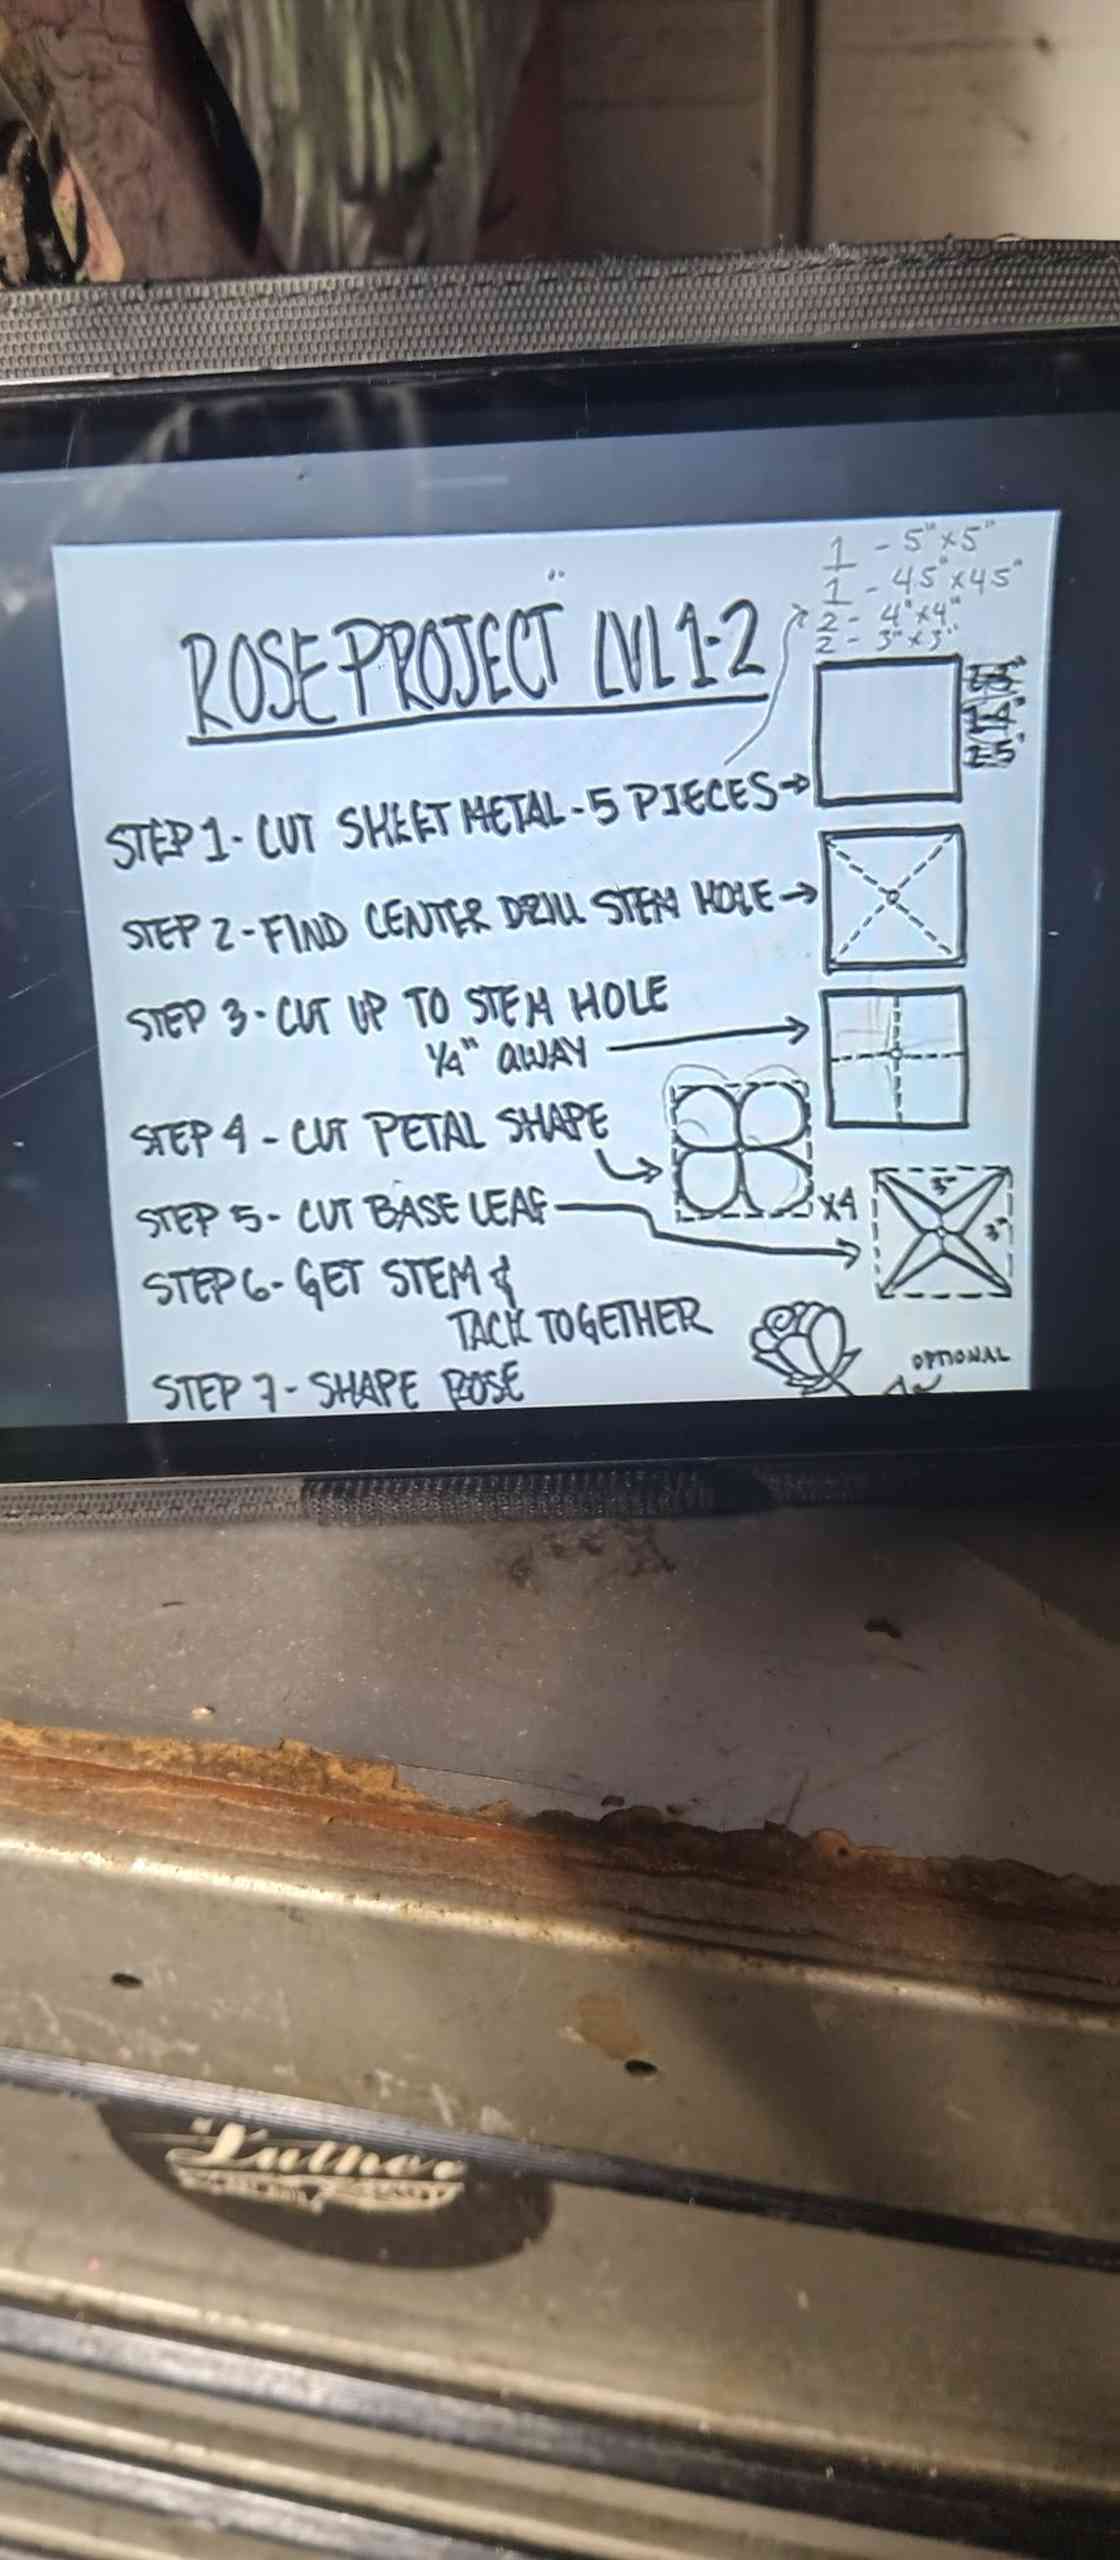 1 - 5" x 5"
1 - 4.5" x 4.5"
2 - 4" x 4"
2 - 3" x 3"
ROSE PROJECT LVL 1-2
STEP 1 - CUT SHEET METAL - 5 PIECES
STEP 2 - FIND CENTER DRILL STEM HOLE
STEP 3 - CUT UP TO STEM HOLE
1/4" AWAY
STEP 4 - CUT PETAL SHAPE
x4
STEP 5 - CUT BASE LEAF
3"
3"
STEP 6 - GET STEM &
TACK TOGETHER
OPTIONAL
STEP 7 - SHAPE ROSE